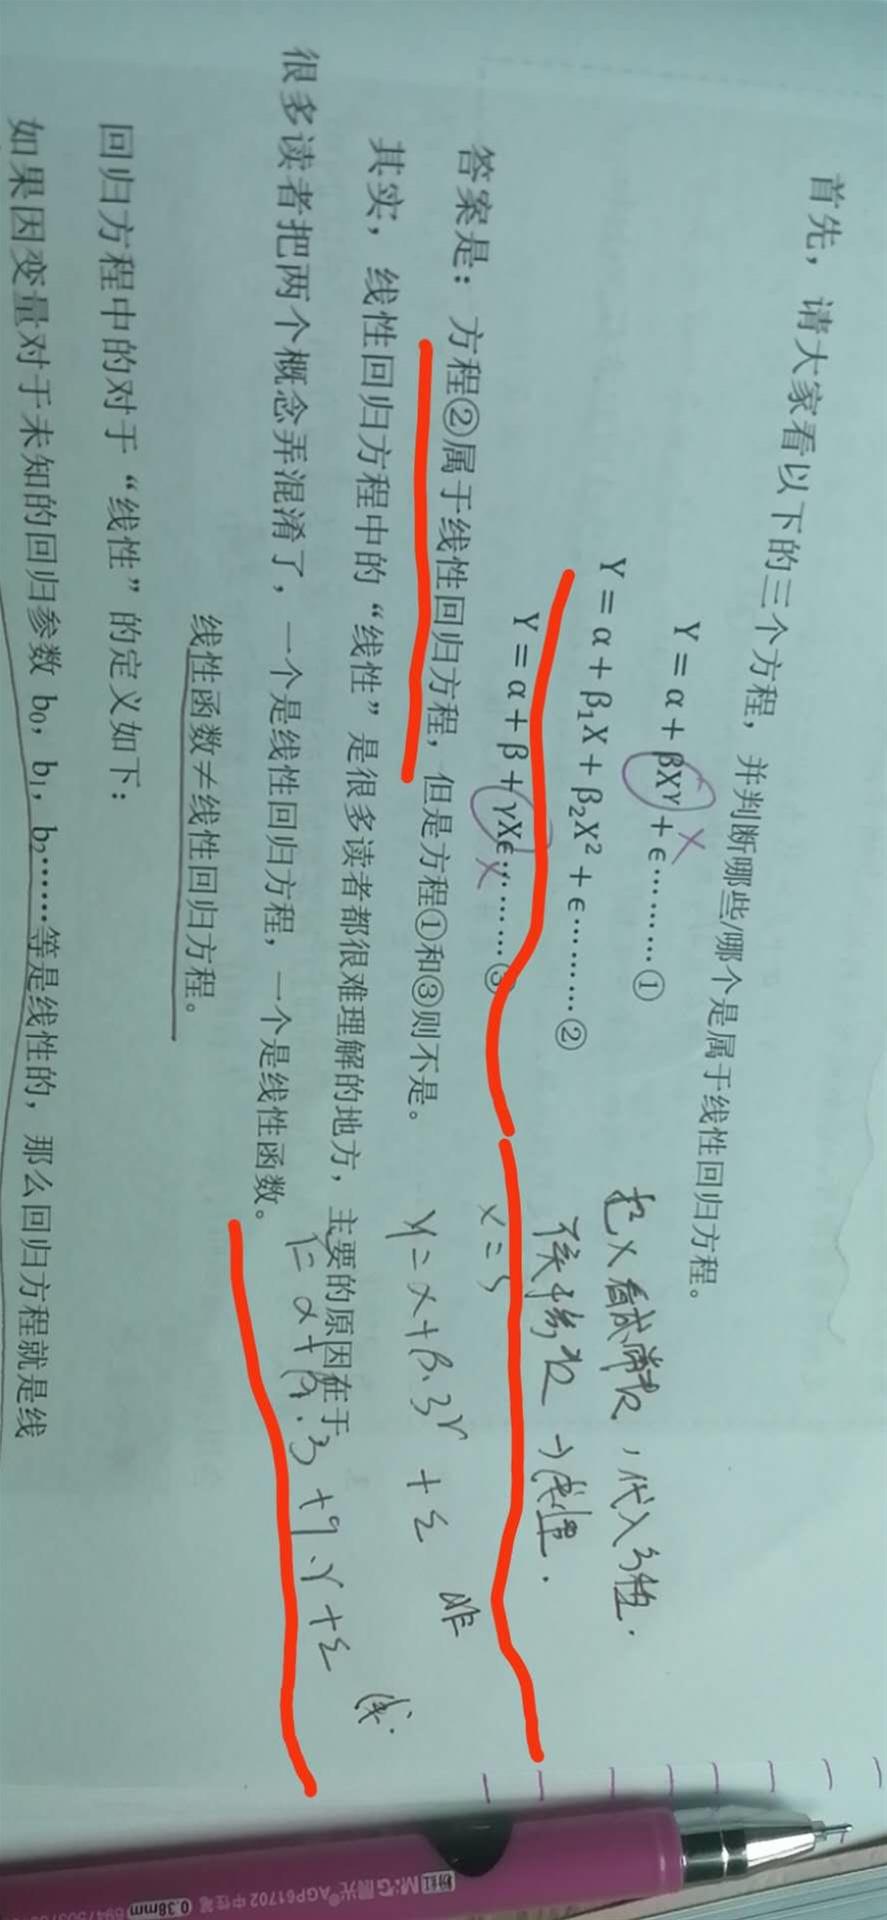 首先，请大家看以下的三个方程，并判断哪些/哪个是属于线性回归方程。
Y = α + βX^γ + ϵ………①
X
Y = α + β₁X + β₂X² + ϵ………②
Y = α + β + γXϵ………③
X
把X看成常数，代入3值.
x=3
答案是：方程②属于线性回归方程，但是方程①和③则不是。
Y=α+β·3^γ+ε 非
其实，线性回归方程中的“线性”是很多读者都很难理解的地方，主要的原因在于
很多读者把两个概念弄混淆了，一个是线性回归方程，一个是线性函数。
Y=α+β·3+9·γ+ε 线.
线性函数≠线性回归方程。
回归方程中的对于“线性”的定义如下：
如果因变量对于未知的回归参数 b₀，b₁，b₂……等是线性的，那么回归方程就是线
粉红 M&G晨光® AGP61702 中性笔 0.38mm